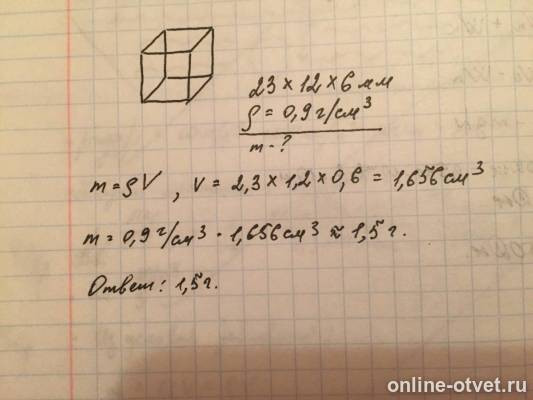 23 × 12 × 6 мм
ρ = 0,9 г/см³
m - ?
m = ρV, V = 2,3 × 1,2 × 0,6 = 1,656 см³
m = 0,9 г/см³ · 1,656 см³ ≈ 1,5 г.
Ответ: 1,5 г.
online-otvet.ru